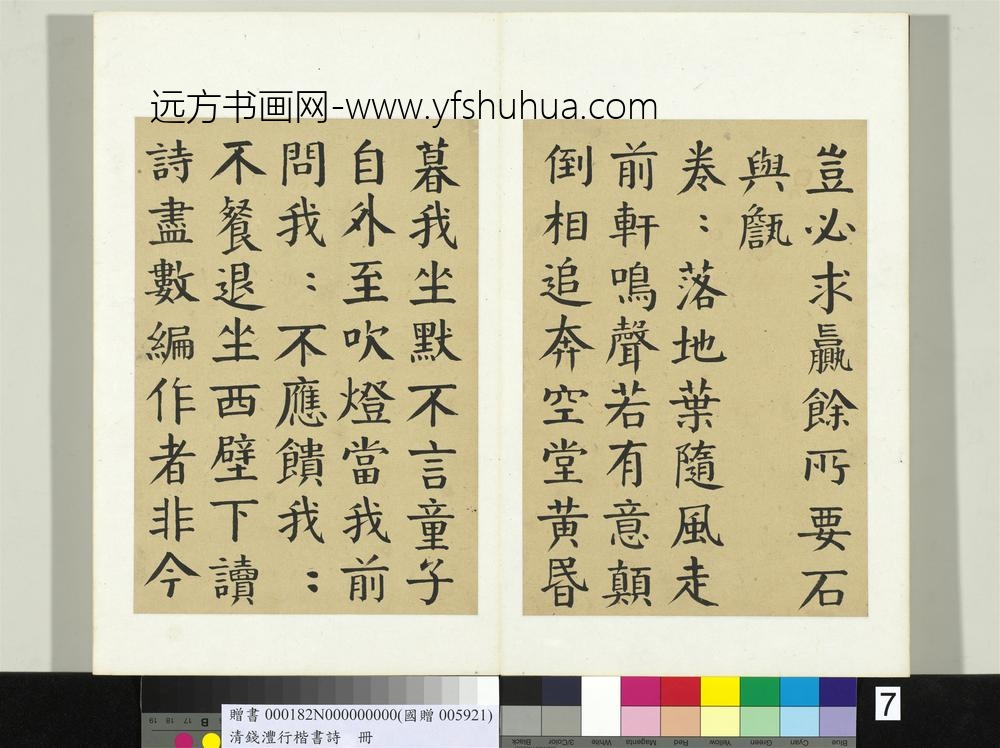 远方书画网-www.yfshuhua.com
豈必求贏餘所要石
與甔
卷：落地葉隨風走
前軒鳴聲若有意顛
倒相追奔空堂黄昏
暮我坐默不言童子
自外至吹燈當我前
問我：不應饋我：
不餐退坐西壁下讀
詩盡數編作者非今
7
贈書 000182N000000000(國贈 005921)
清錢灃行楷書詩 冊
Blue Cyan Green Yellow Red Magenta White 3/Color Black
B 17 18 19